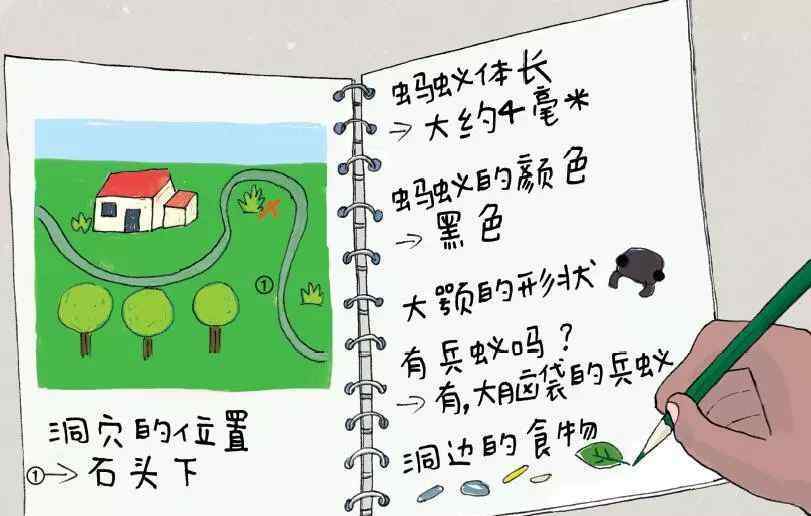 ①
洞穴的位置
①→石头下
蚂蚁体长
→大约4毫米
蚂蚁的颜色
→黑色
大颚的形状
有兵蚁吗？
→有,大脑袋的兵蚁
洞边的食物